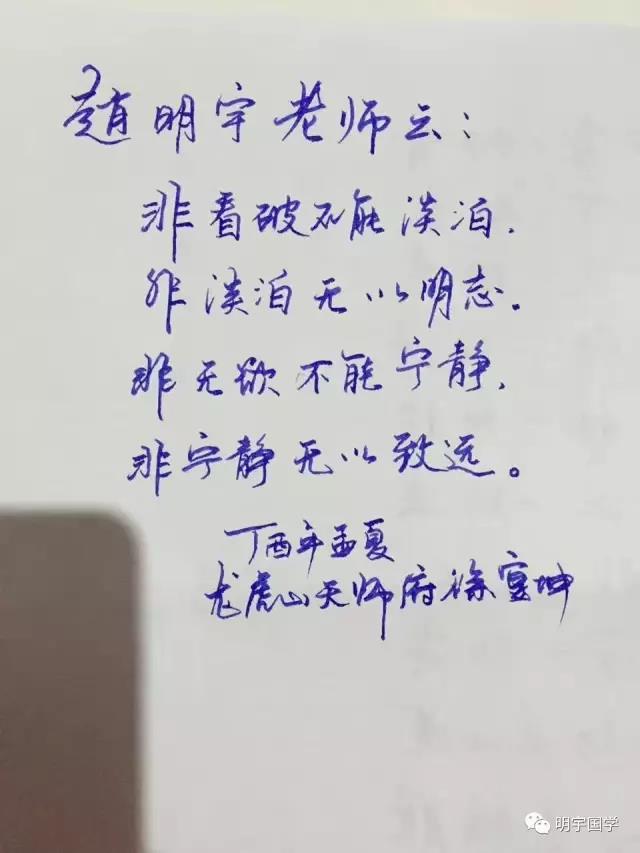 赵明宇老师云：
非看破不能淡泊，
非淡泊无以明志。
非无欲不能宁静，
非宁静无以致远。
丁酉年孟夏
龙虎山天师府徐室坤
明宇国学